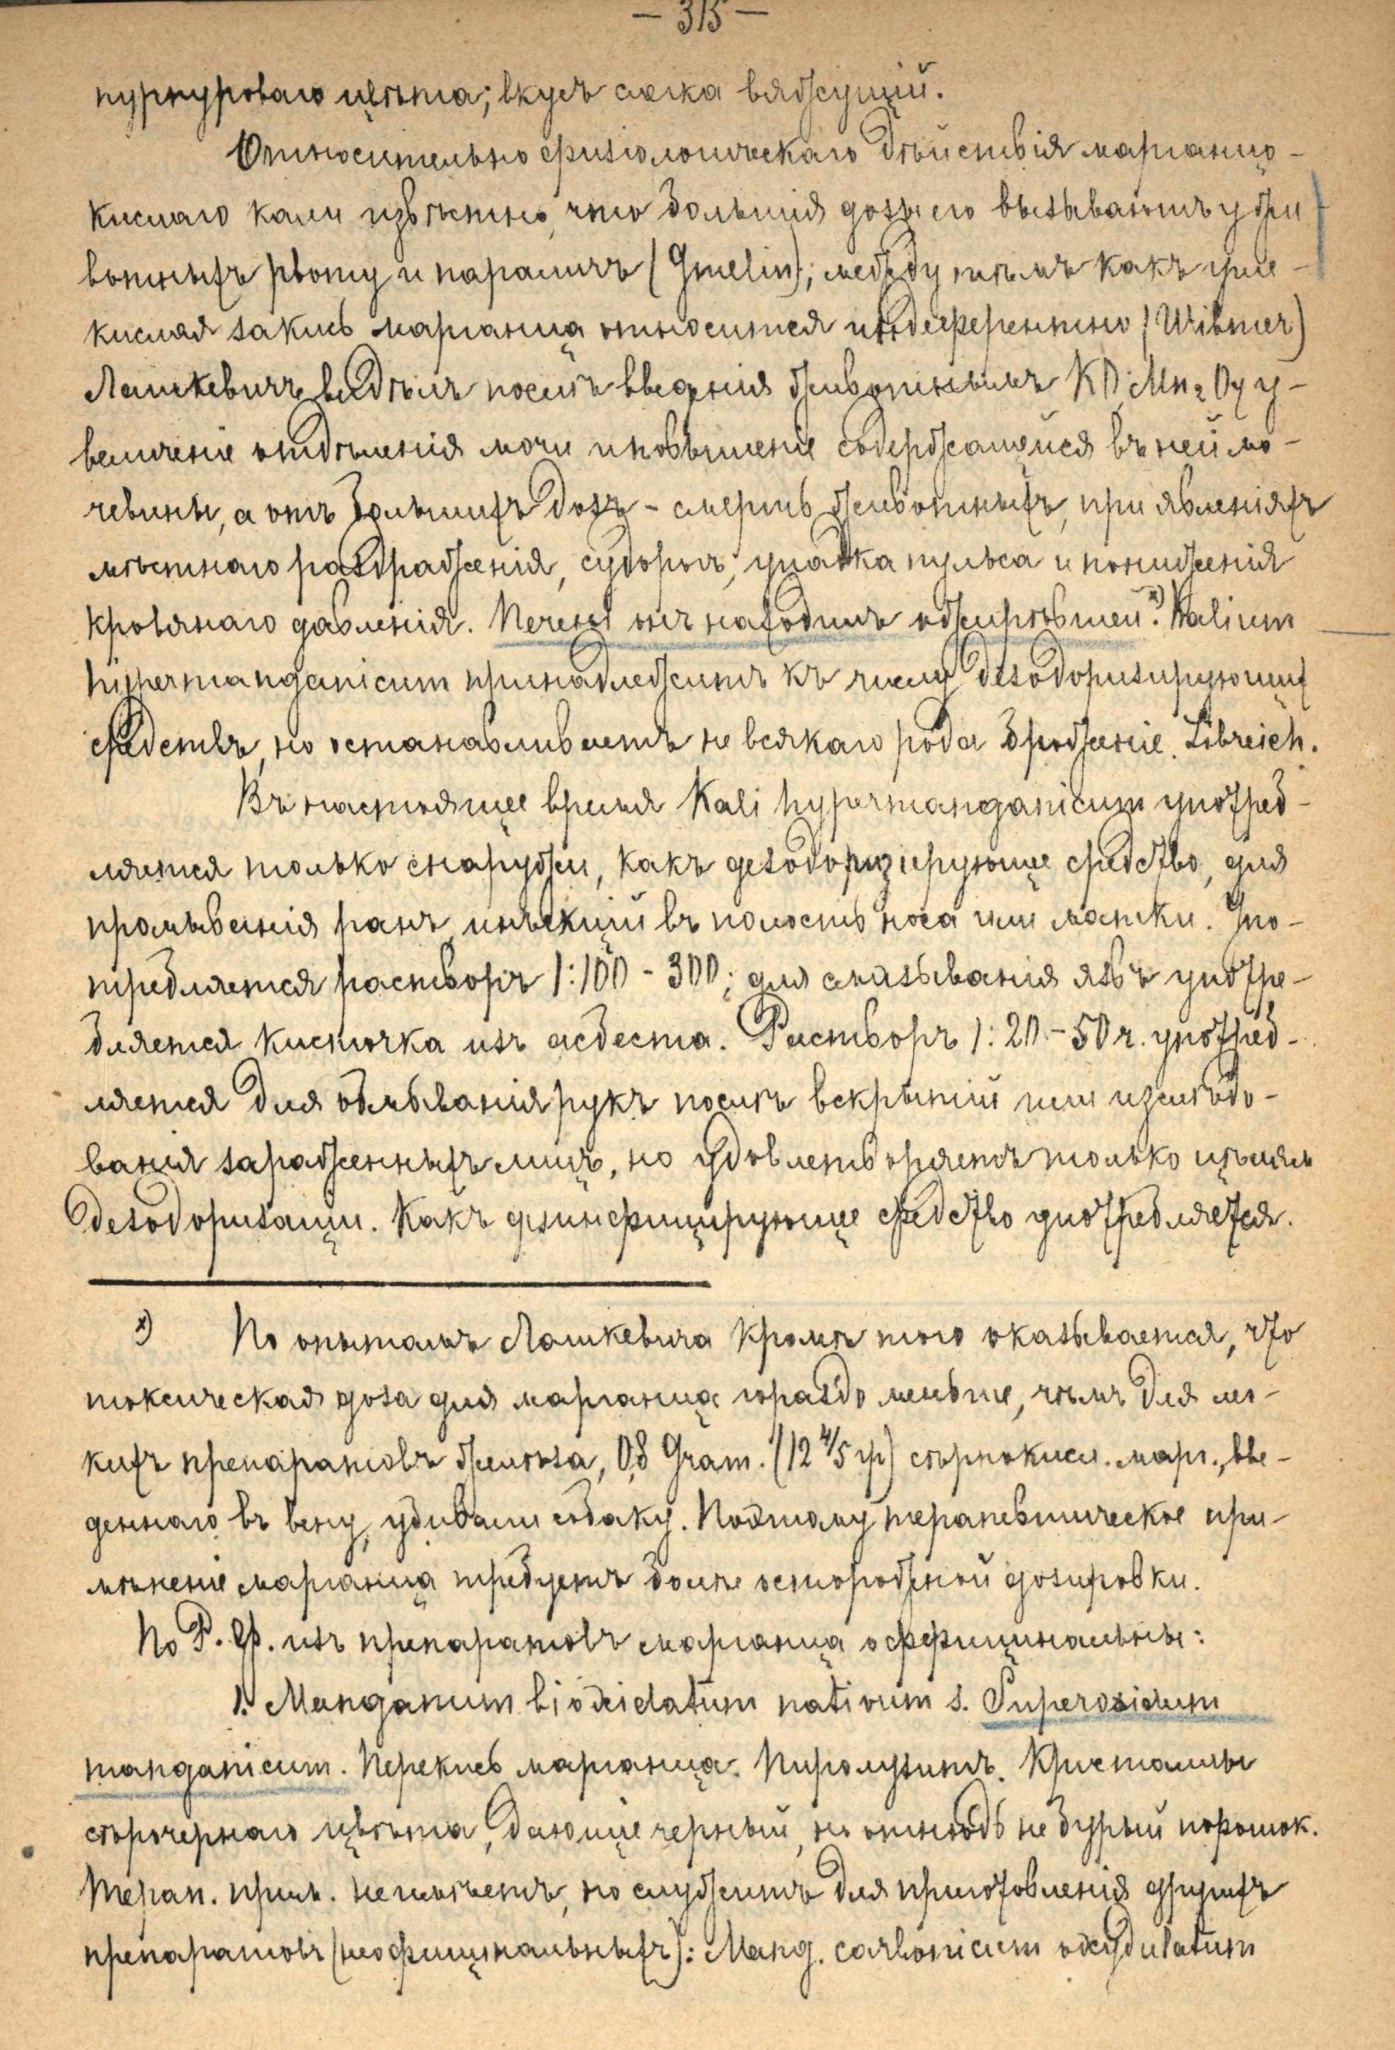 — 315 —
пурпуроваго цвѣта; вкусъ слегка вяжущій.
Относительно физіологическаго дѣйствія марганцо-
кислаго кали извѣстно, что большія дозы его вызываютъ у жи
вотныхъ рвоту и параличъ (Gmelin); между тѣмъ какъ угле-
кислая закись марганца относится индеферентно (Wibmer)
Лашкевичъ видѣлъ послѣ введенія животнымъ KO, Mn₂O₇ у-
величеніе отдѣленія мочи и повышеніе содержащейся въ ней мо-
чевины, а отъ большихъ дозъ - смерть животныхъ, при явленіяхъ
мѣстнаго раздраженія, судорогъ, упадка пульса и пониженія
кровянаго давленія. Печень онъ находилъ ожирѣвшей.ˣ⁾ Kalium
hypermanganicum принадлежитъ къ числу дезодоризирующих
средствъ, но останавливаетъ не всякаго рода броженіе. Libreich.
Въ настоящее время Kali hypermanganicum употреб-
ляется только снаружи, какъ дезодоризирующее средство, для
промыванія ранъ, инъекцій въ полость носа или матки. Упо-
требляется растворъ 1:100 - 300; для смазыванія язвъ употре-
бляется кисточка изъ асбеста. Растворъ 1:20 - 50 ч. употреб-
ляется для обмыванія рукъ послѣ вскрытій или изслѣдо-
ванія зараженныхъ лицъ, но удовлетворяетъ только цѣлямъ
дезодоризаціи. Какъ дезинфицирующее средство употребляется.
ˣ⁾ По опытамъ Лашкевича кромѣ того оказывается, что
токсическая доза для марганца гораздо меньше, чѣмъ для лег-
кихъ препаратовъ желѣза, 0,8 Gram. (12 4/5 гр) сѣрнокисл. марг., вве-
деннаго въ вену, убивали собаку. Поэтому терапевтическое при-
мѣненіе марганца требуетъ болѣе осторожной дозировки.
По Р. Ф. изъ препаратовъ марганца оффицинальны:
1. Manganum bioxidatum nativum s. Superoxidum
manganicum. Перекись марганца. Пиролузитъ. Кристаллы
сѣрочернаго цвѣта, дающіе черный, но отнюдь не бурый порошок.
Терап. прим. не имѣетъ, но служитъ для приготовленія другихъ
препаратовъ (неофицинальныхъ): Mang. carbonicum oxydulatum